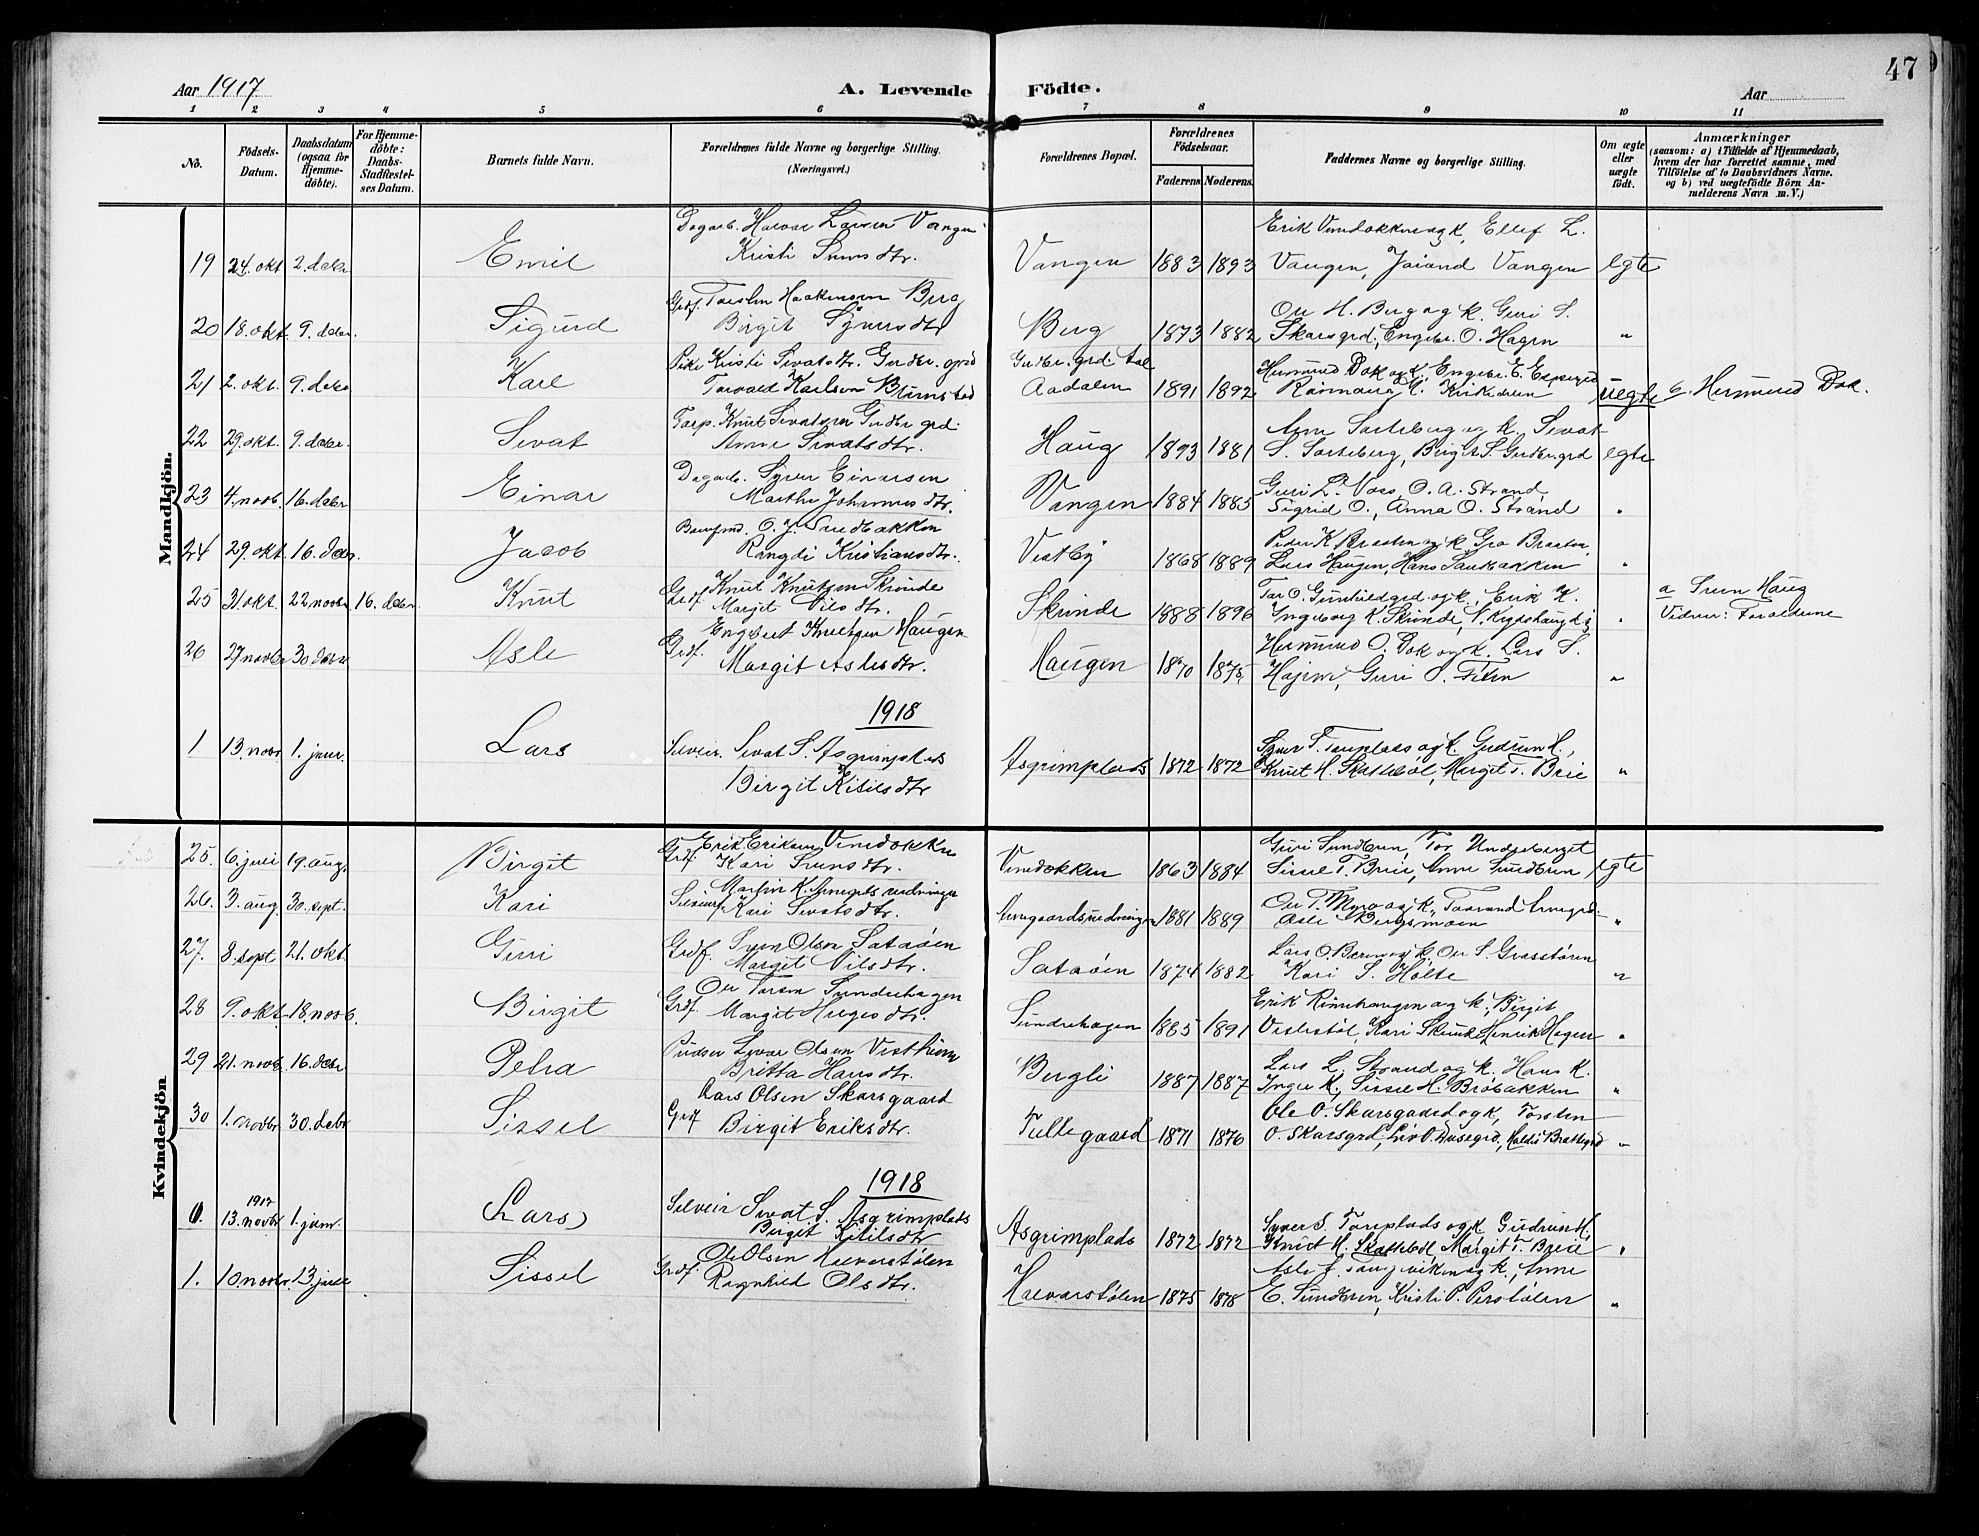 47
Aar 1917
A. Levende Födte.
Aar
1 2 3 4 5 6 7 8 9 10 11
No.
Födsels-Datum.
Daabsdatum (ogsaa for Hjemmedöbte).
For Hjemmedöbte: Daabs-Stadfæstelses Datum.
Barnets fulde Navn.
Forældrenes fulde Navne og borgerlige Stilling. (Næringsvei.)
Forældrenes Bopæl.
Forældrenes Födselsaar.
Faderens. Moderens.
Faddernes Navne og borgerlige Stilling.
Om ægte eller uægte födt.
Anmærkninger
(saasom: a) i Tilfælde af Hjemmedaab, hvem der har forrettet samme, med Tilföielse af to Daabsvidners Navne. og b) ved uægtefödte Börn Anmelderens Navn m. V.)
Mandkjön.
19 24. okt 2. debr Emil Dagarb. Halvar Larsen Vangen
Kristi Svensdtr. Vangen 1883 1893 Erik Vindokken og k, Ellef L.
Vangen, Vangen egte
20 18. okt. 9. debr. Sigurd Grdf. Torsten Haakensen Berg
Birgit Synersdtr Berg 1873 1882 Ole H. Berg og k. Guri S.
Skarsgrd, Engebr. O. Hagen "
21 2. okt. 9. debr Karl Pike Kristi Sevatsdtr.
Torvald Karlsen Aadalen 1891 1892 Hermund Dok og k, Engebr. E.
uegte b. Hermund Dok.
22 29. okt. 9. debr. Sevat Forp. Knut Sevatsen
Anne Sevatsdtr. Haug 1893 1881 og k, Sevat
S. Birgit S. egte
23 4. novb. 16. debr Einar Dagarb. Syver Einarsen
Marthe Johannesdtr. Vangen 1884 1885 Guri L. Voss, O. A. Strand,
Sigrid O., Anna O. Strand "
24 29. okt. 16. debr. Jacob O. J. Sundbakken
Rangdi Kristiansdtr. Vestby 1868 1889 Peder K. Braaten og k, Gro Braaten,
Lars Haugen, Hans "
25 31. okt. 22 novbr 16. debr. Knut Grdf Knut Knutsen Skrinde
Margit Nilsdtr. Skrinde 1888 1896 Tor O. Gunhildgrd og k, Erik K.
Ingeborg K. Skrinde, " a Sven Haug
Vidner: Foreldrene
26 27 novbr 30 debr Asle Grdf. Engbret Knutsen Haugen
Margit Aslesdtr. Haugen 1870 1875 Hermund O. Dok og k. Lars S.
Guri O. "
1918
1. 13. novbr 1. janr. Lars Selveir. Sevat S. Asgrimplads
Birgit Kitilsdtr Asgrimplads 1872 1872 Syver S. Toreplads og k. Gudrun H.,
Knut H. Skattebøl, Margit T. Breie "
Kvindekjön.
25. 6. juli 19. aug. Birgit Grdf. Erik Eriksen Vindokken
Kari Svensdtr. Vindokken 1863 1884 Guri Sundbren, Tor Underberget
Sissel T. Breie, Anne Sundbren egte
26. 3. aug. 30. sept. Kari Selveier Martin K.
Kari Sevatsdtr. 1881 1889 Ole T. Myro og k,
Asle Bergsmoen "
27. 8. sept 21. okt. Guri Grdf. Sven Olsen Sataøen
Margit Nilsdtr. Sataøen 1874 1882 Lars O. og k, Ole S.
Kari S. Holte "
28 9. okt. 18. novb. Birgit Grdf. Ole Torsen Sundrehagen
Margit Hugesdtr. Sundrehagen 1885 1891 Erik og k, Birgit
Veslestøl, Kari Henrik Hagen "
29 21. novb. 16. debr Petra Sevar Olsen Vestheim
Britta Hansdtr. Bergli 1887 1887 Lars L. Strand og k. Hans K.
Inger K, Sissel H. Brøbakken "
30 1. novbr 30. debr Sissel Grdf Lars Olsen Skarsgaard
Birgit Eriksdtr. Tuftegaard 1871 1876 Ole O. Skarsgaard og k, Torsten
O. Skarsgrd, Liv O. "
1918
0. 1917
13. novbr 1. janr. Lars Selveir Sevat S. Asgrimplads
Birgit Kitilsdtr Asgrimplads 1872 1872 Syver S. Toreplads og k. Gudrun H,
Knut H. Skattebøl, Margit T. Breie "
1. 10. novbr. 13. janr Sissel Grdf. Ole Olsen Halvarstølen
Ragnhild Olsdtr. Halvarstølen 1875 1878 Asle og k, Anne
E. Sundbren, Kristi P. Perstølen "